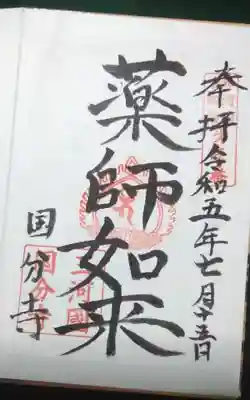 奉拝 令和五年七月十五日
薬師如来
三河國
国分寺
国分寺